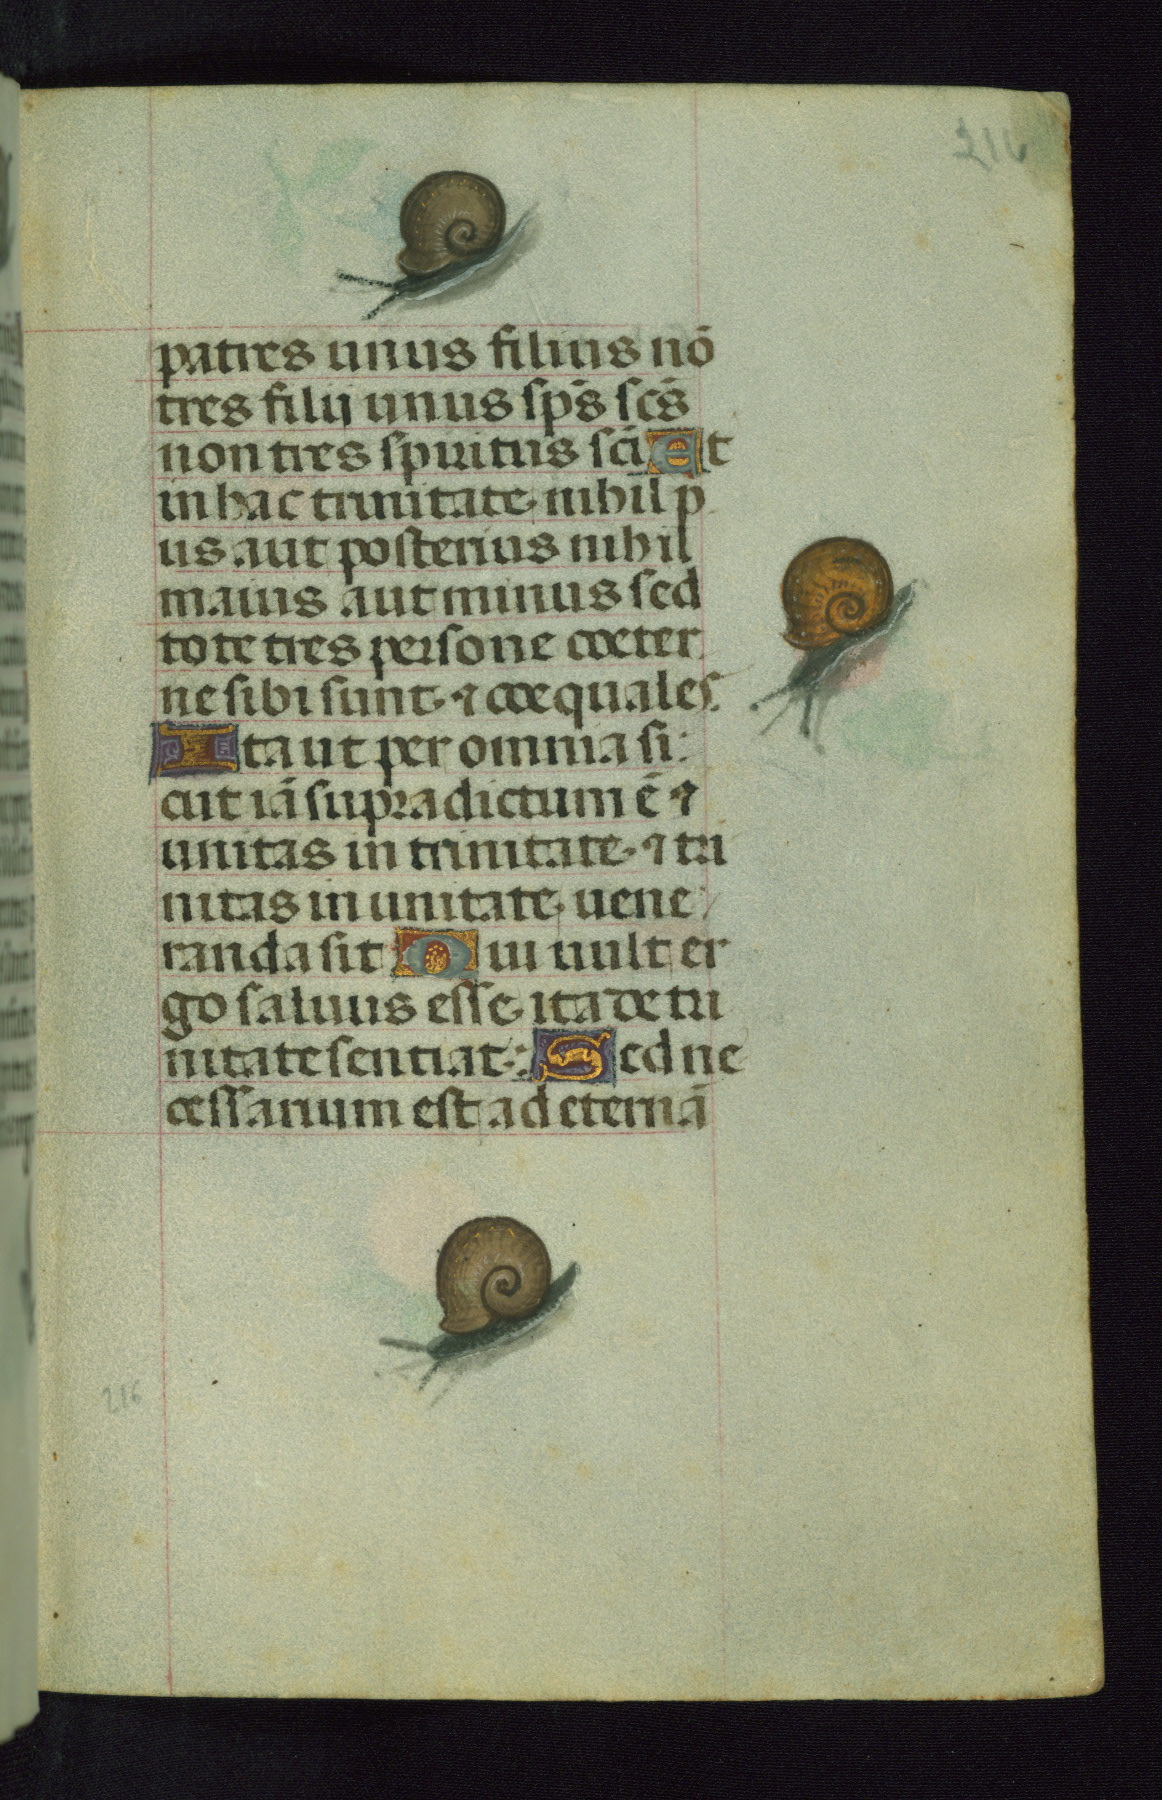 216
patres unus filius nō
tres filii unus sp̄s sc̄s
non tres spiritus sc̄i Et
in hac trinitate nihil p
us aut posterius nihil
maius aut minus sed
tote tres persone coeter
ne sibi sunt ⁊ coequales
Ita ut per omnia si
cut iā supradictum ē ⁊
unitas in trinitate ⁊ tri
nitas in unitate uene
randa sit Qui uult er
go saluus esse ita de tri
nitate sentiat: Sed ne
cessarium est ad eternā
216